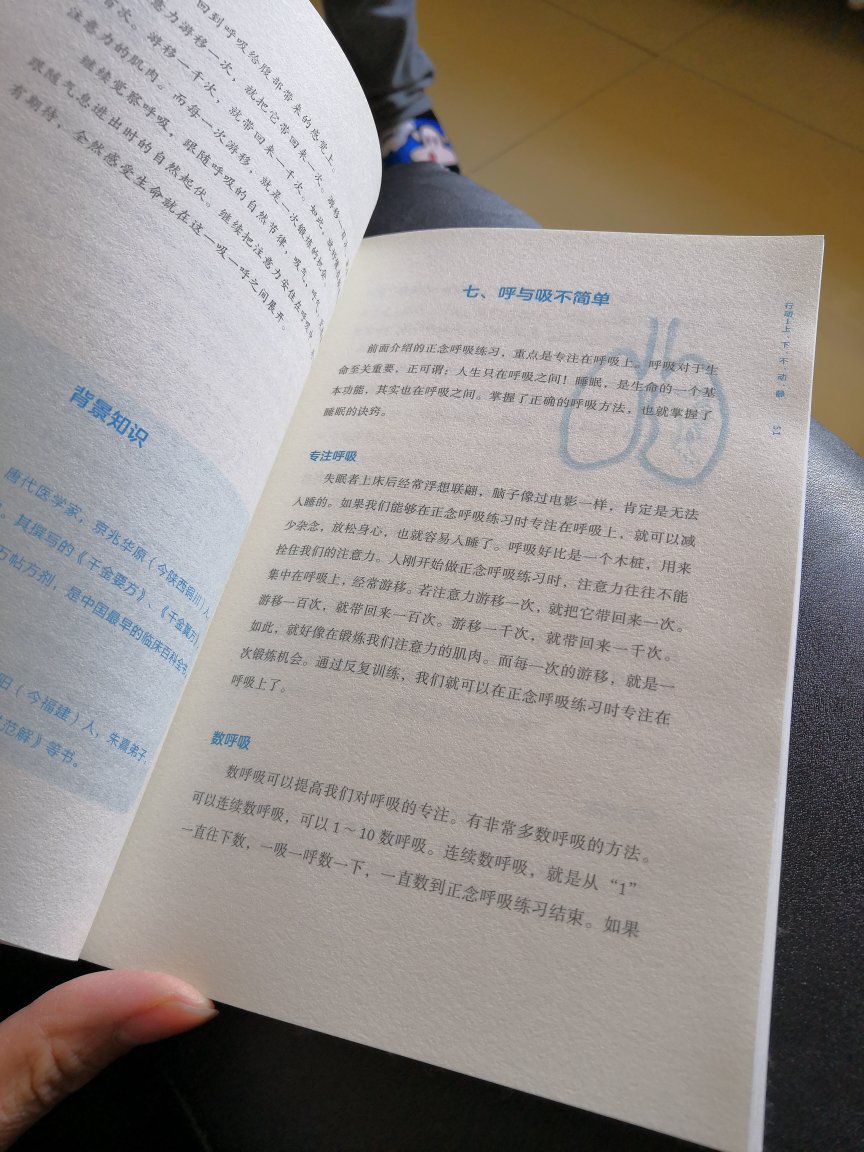 回到呼吸给腹部带来的感觉上。
意力游移一次，就把它带回来一次。游移一
百次。游移一千次，就带回来一千次。如此，
注意力的肌肉。而每一次游移，就是一次锻炼的机会。
继续觉察呼吸，跟随呼吸的自然节律，吸气，呼气，
跟随气息进出时的自然起伏。继续把注意力安住在呼吸
有期待，全然感受生命就在这一吸一呼之间展开。
背景知识
唐代医学家，京兆华原（今陕西铜川）人
。其撰写的《千金要方》、《千金翼方》
万帖方剂，是中国最早的临床百科全书
旧（今福建）人，朱熹弟子，
范解》等书。
七、呼与吸不简单
前面介绍的正念呼吸练习，重点是专注在呼吸上。呼吸对于生
命至关重要，正可谓：人生只在呼吸之间！睡眠，是生命的一个基
本功能，其实也在呼吸之间。掌握了正确的呼吸方法，也就掌握了
睡眠的诀窍。
专注呼吸
失眠者上床后经常浮想联翩，脑子像过电影一样，肯定是无法
入睡的。如果我们能够在正念呼吸练习时专注在呼吸上，就可以减
少杂念，放松身心，也就容易入睡了。呼吸好比是一个木桩，用来
拴住我们的注意力。人刚开始做正念呼吸练习时，注意力往往不能
集中在呼吸上，经常游移。若注意力游移一次，就把它带回来一次。
游移一百次，就带回来一百次。游移一千次，就带回来一千次。
如此，就好像在锻炼我们注意力的肌肉。而每一次的游移，就是一
次锻炼机会。通过反复训练，我们就可以在正念呼吸练习时专注在
呼吸上了。
数呼吸
数呼吸可以提高我们对呼吸的专注。有非常多数呼吸的方法。
可以连续数呼吸，可以1～10数呼吸。连续数呼吸，就是从“1”
一直往下数，一吸一呼数一下，一直数到正念呼吸练习结束。如果
行动1 上下不动静
51